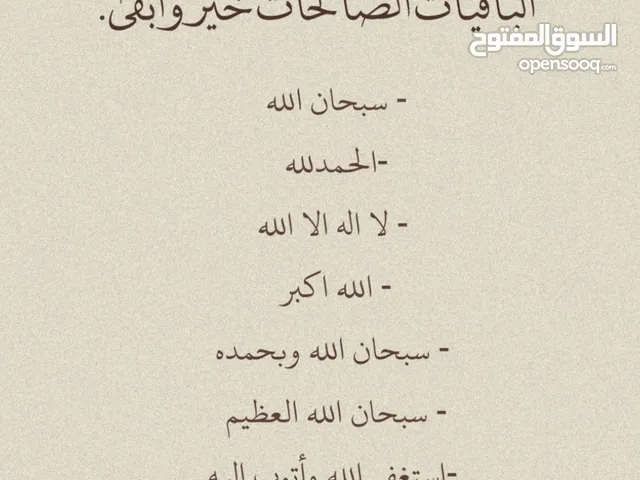 الباقيات الصالحات خير وأبقى.
السوق المفتوح
opensooq.com
- سبحان الله
-الحمدلله
- لا اله الا الله
- الله اكبر
- سبحان الله وبحمده
- سبحان الله العظيم
-استغفر الله وأتوب إليه